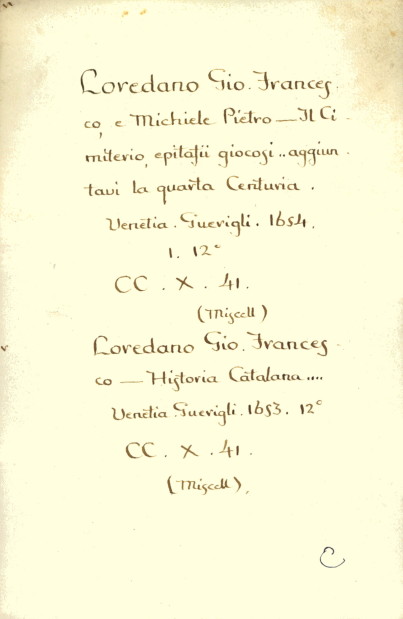 Loredano Gio. Frances
co, e Michiele Pietro — Il Ci
miterio, epitafii giocosi .. aggiun
tavi la quarta Centuria .
Venetia . Guerigli . 1654.
1. 12°
CC . X . 41 .
(Miscell)
Loredano Gio. Frances
co — Historia Catalana ....
Venetia Guerigli . 1653 . 12°
CC . X . 41 .
(Miscell).
C